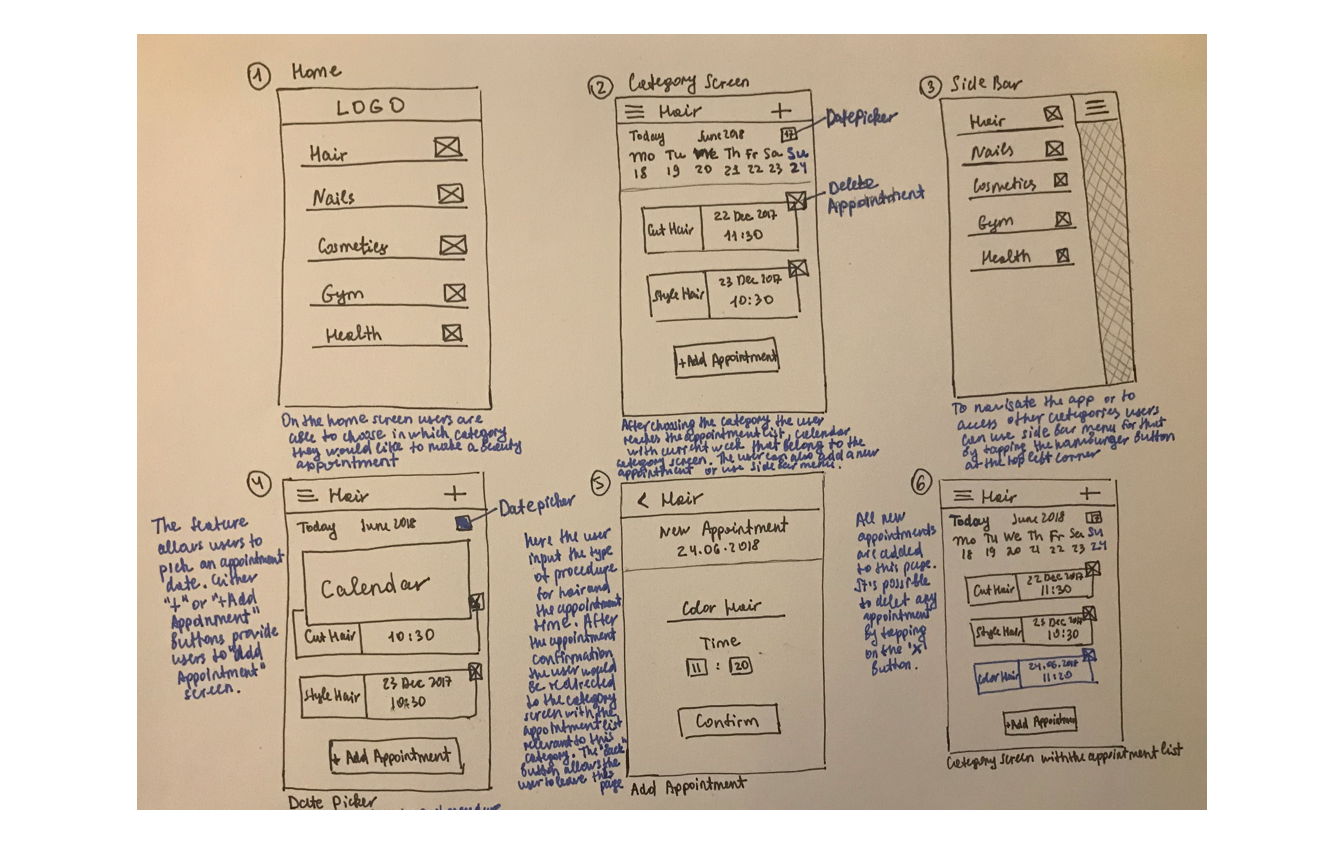 1 Home
LOGO
Hair
Nails
Cosmetics
Gym
Health
On the home screen users are
able to choose in which category
they would like to make a beauty
appointment
2 Category Screen
Hair +
Today June 2018 17
Mo Tu We Th Fr Sa Su
18 19 20 21 22 23 24
Datepicker
Delete
Appointment
Cut Hair 22 Dec 2017
11:30
Style Hair 23 Dec 2017
10:30
+Add Appointment
After choosing the category the user
reaches the appointment list, calendar
with current week that belong to the
category screen. The user can also add a new
appointment or use side bar menu.
3 Side Bar
Hair
Nails
Cosmetics
Gym
Health
To navigate the app or to
access other categories users
can use side bar menu for that
by tapping the hamburger button
at the top left corner
4
Hair +
Today June 2018
Datepicker
Calendar
Cut Hair 10:30
Style Hair 23 Dec 2017
10:30
+ Add Appointment
Date Picker
The feature
allows users to
pick an appointment
date. Either
"+" or "+Add
Appoinment"
Buttons provide
users to "add
Appointment"
screen.
5
< Hair
New Appointment
24.06.2018
Color Hair
Time
11 : 20
Confirm
Add Appointment
here the user
input the type
of procedure
for hair and
the appointment
time. After
the appointment
confirmation
the user would
be redirected
to the category
screen with the
appointment list
relevant to this
category. The "Back"
button allows the
user to leave this
page
6
Hair +
Today June 2018 17
Mo Tu We Th Fr Sa Su
18 19 20 21 22 23 24
Cut Hair 22 Dec 2017
11:30
Style Hair 23 Dec 2017
10:30
Color Hair 24.06.2017
11:20
+Add Appoinment
Category screen with the appointment list
All new
appointments
are added
to this page.
It's possible
to delet any
appointment
by tapping
on the "x"
button.